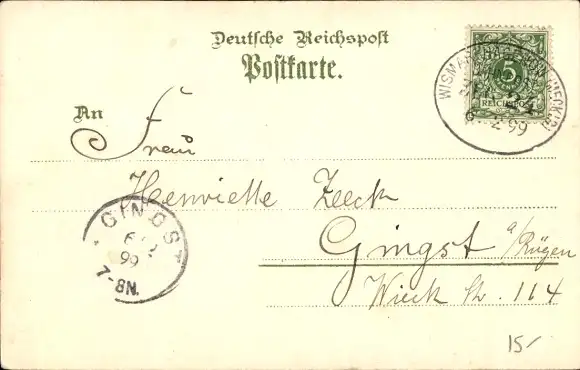 Deutsche Reichspost
Postkarte.
An
Frau
Henriette Zeeck
Gingst a/Rügen
Wieck Str. 114
5
REICHSPOST
WISMAR
6 2 99
GINGST
6 2
99
7-8N.
15/